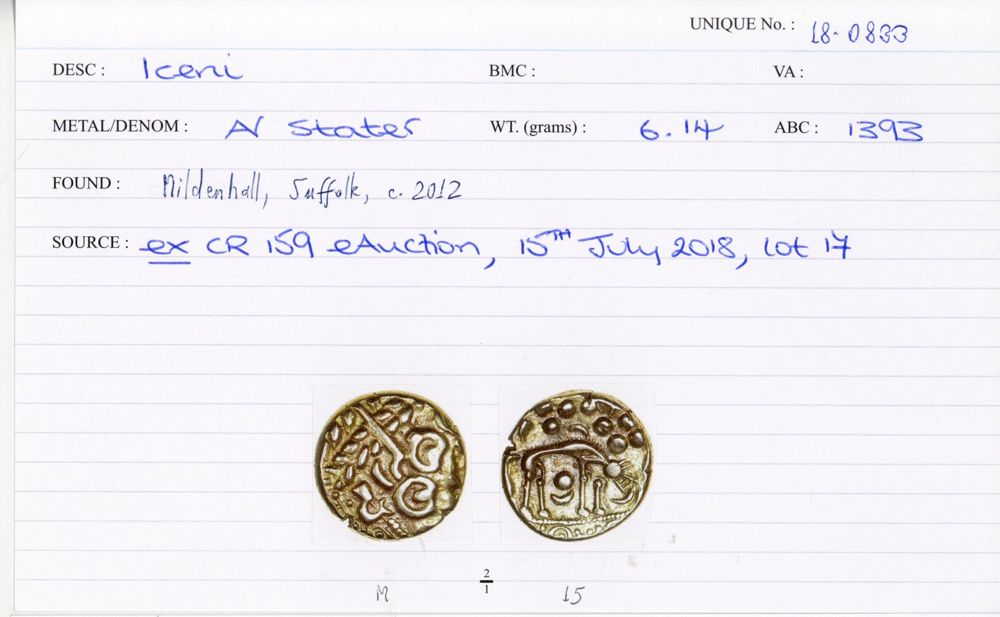 UNIQUE No. : 18-0833
DESC : Iceni BMC : VA :
METAL/DENOM : AV Stater WT. (grams) : 6.14 ABC : 1393
FOUND : Mildenhall, Suffolk, c. 2012
SOURCE : ex CR 159 eAuction, 15TH July 2018, lot 17
2/1
M 15